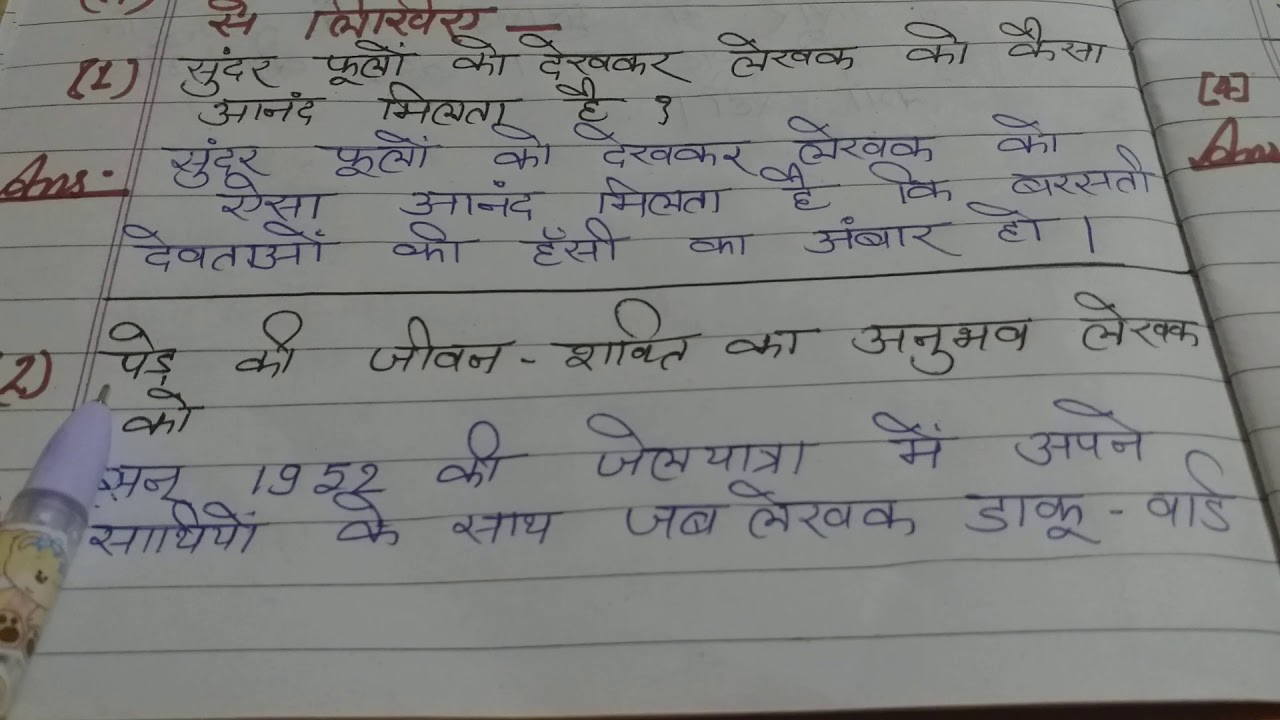 से लिखिए —
(1) सुंदर फूलों को देखकर लेखक को कैसा
आनंद मिलता है ?
Ans:- सुंदर फूलों को देखकर लेखक को
ऐसा आनंद मिलता है कि बरसती
देवताओं की हँसी का अंबार हो ।
2) पेड़ की जीवन - शक्ति का अनुभव लेखक
को
सन् 1932 की जेलयात्रा में अपने
साथियों के साथ जब लेखक डाकू - वार्ड
[4]
Ans